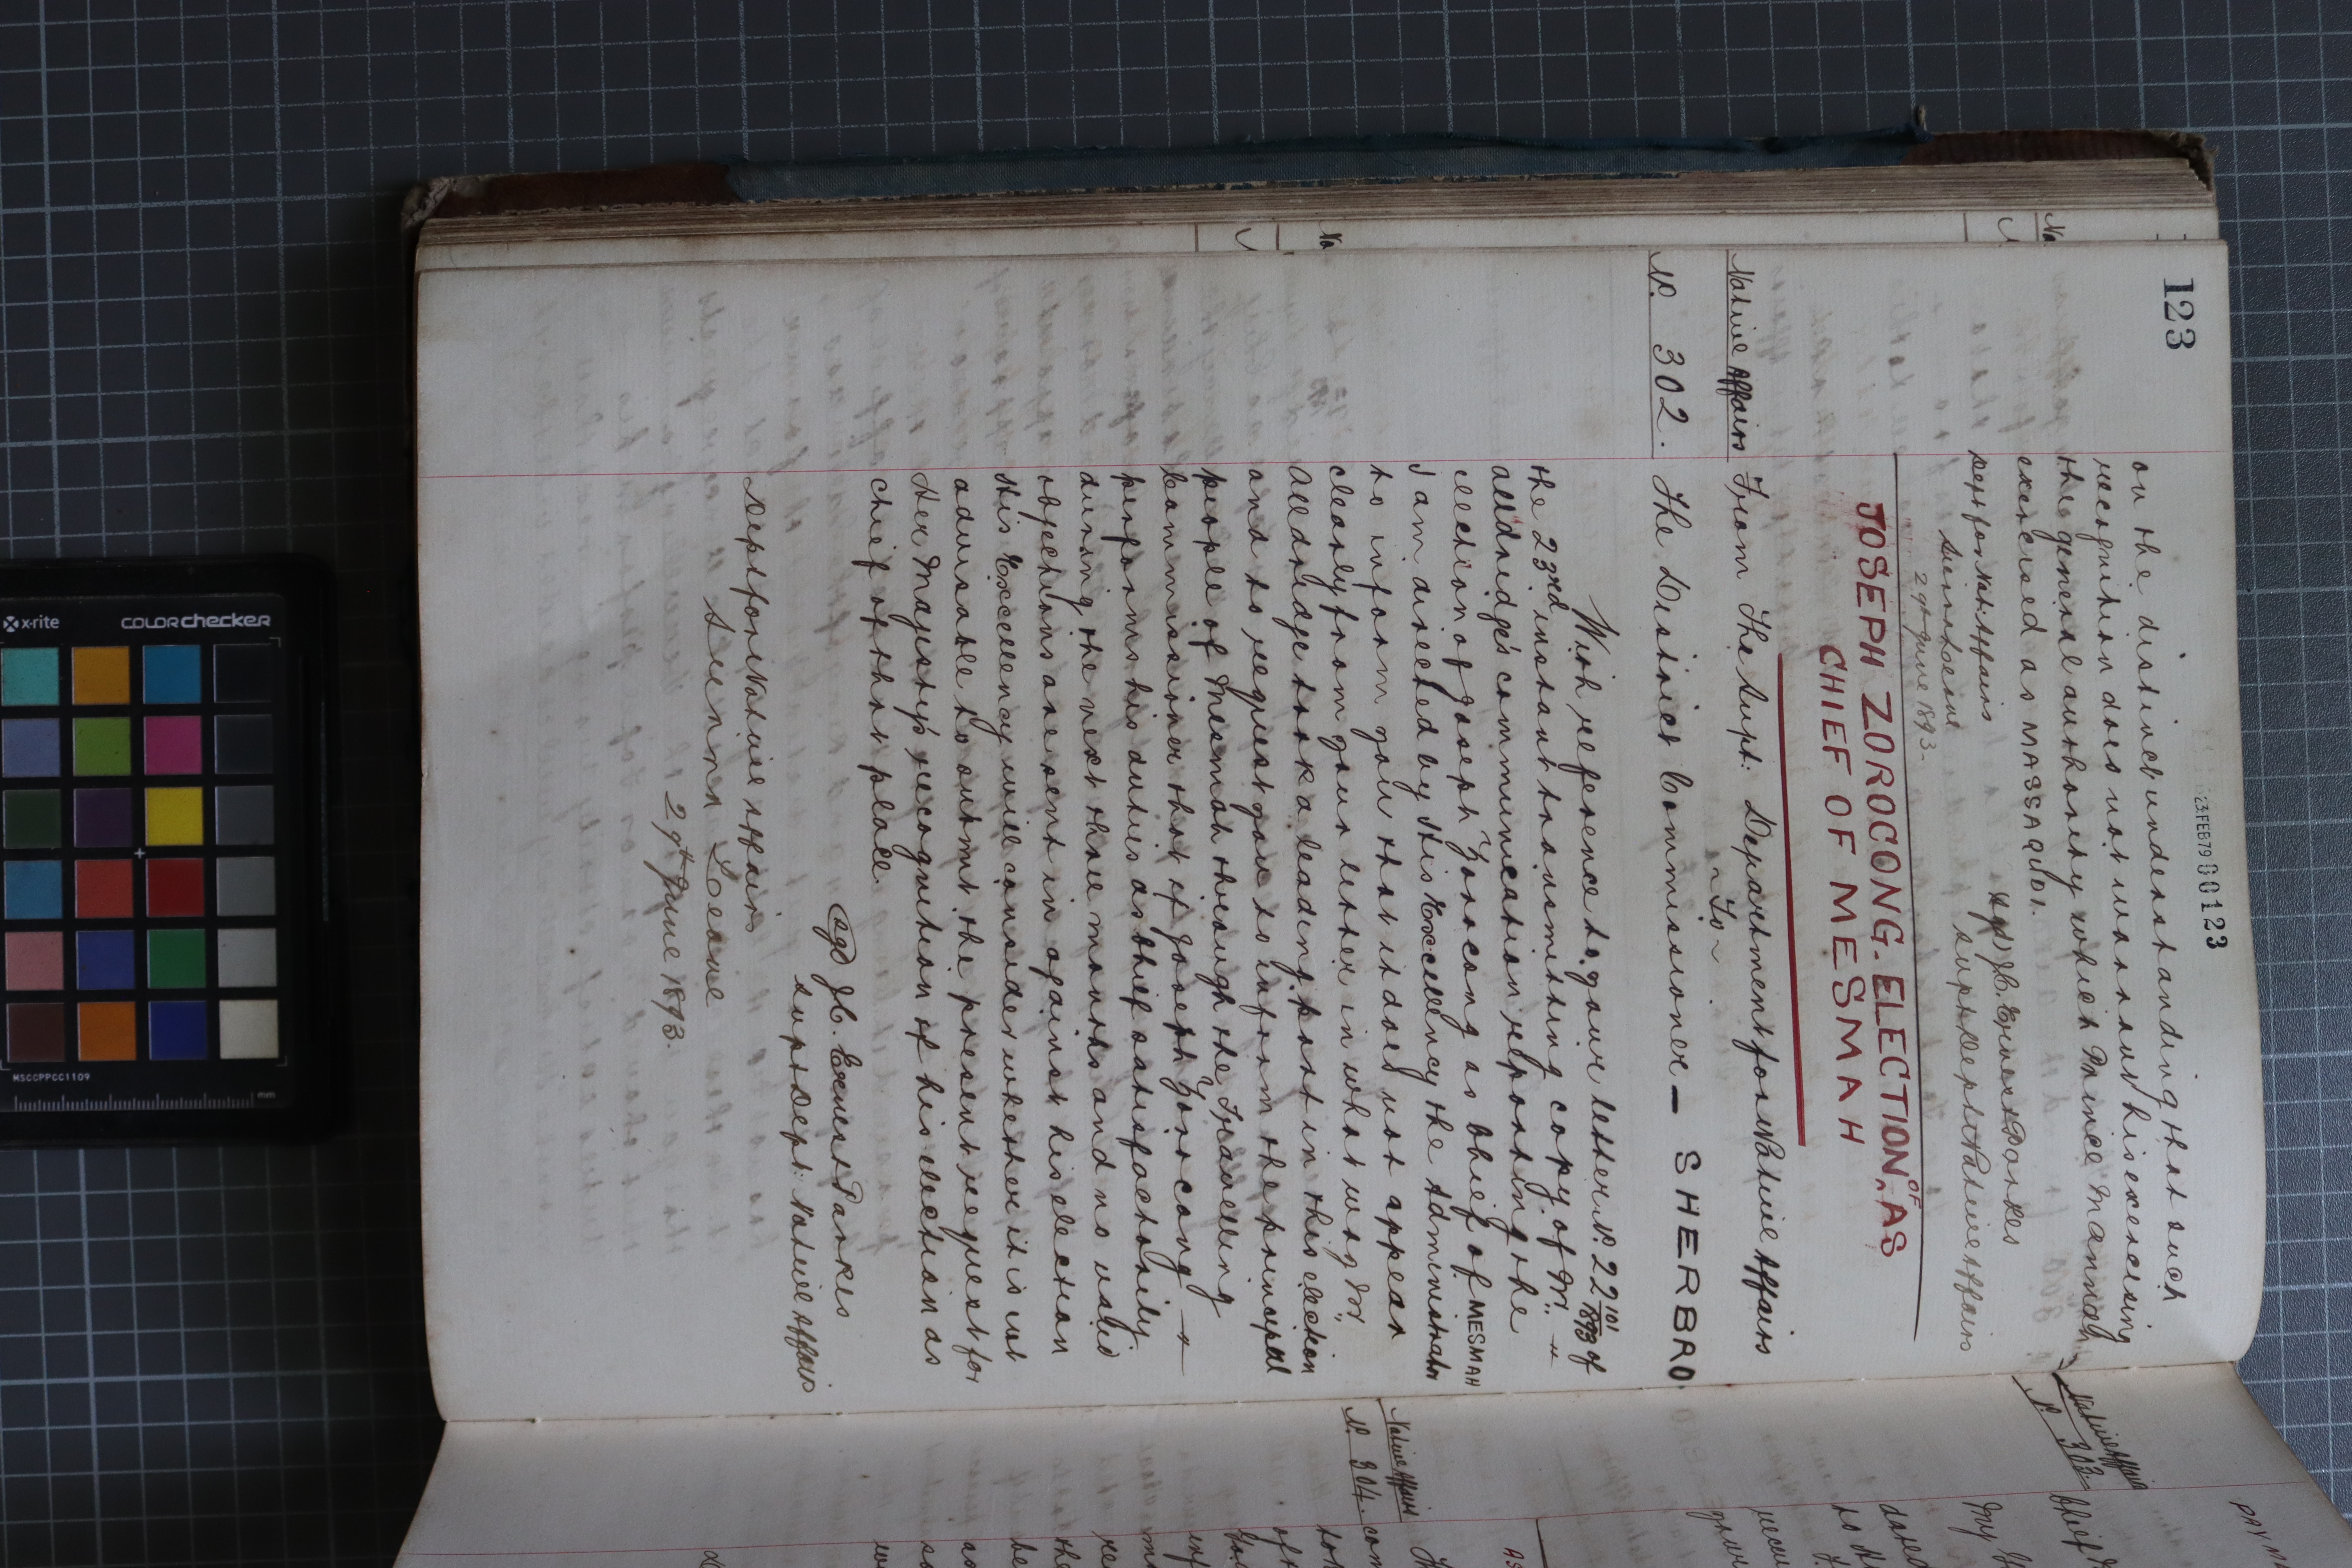 123
23 FEB 79 00123
on the distinct understanding that such
recognition does not warrant his exercising
the general authority which Prince Mannah
exercised as MASSAQUOI.
(Sgd) J. C. Ernest Parkes
Supt Dept Native Affairs
Dept for Nat: Affairs
Sierra Leone
29th June 1893.
JOSEPH ZOROCONG. ELECTION OF AS
CHIEF OF MESMAH
Native Affairs
From The Supt: Department for Native Affairs
~ To ~
No. 302.
The District Commissioner — SHERBRO
With reference to your letter No. 22 101/1893 of
the 23rd instant transmitting copy of Mr.
Alldridge's communication reporting the
election of Joseph Zorocong as Chief of MESMAH
I am directed by His Excellency the Administrator
to inform you that it does not appear
clearly from your letter in what way Mr.
Alldridge took a leading part in this election
and to request you to inform the principal
people of Mesmah through the Travelling
Commissioner that if Joseph Zorocong
performs his duties as Chief satisfactorily
during the next three months and no valid
objections are sent in against his election
His Excellency will consider whether it is not
advisable to submit the present request for
Her Majesty's recognition of his election as
Chief of that place.
(Sgd) J. C. Ernest Parkes
Supt Dept: Native Affairs
Dept for Native Affairs
Sierra Leone
29th June 1893.
Native Affairs
No. 303.
Chief
Native Affairs
No. 304.
x-rite
COLORchecker
MSCCPPCC1109
mm